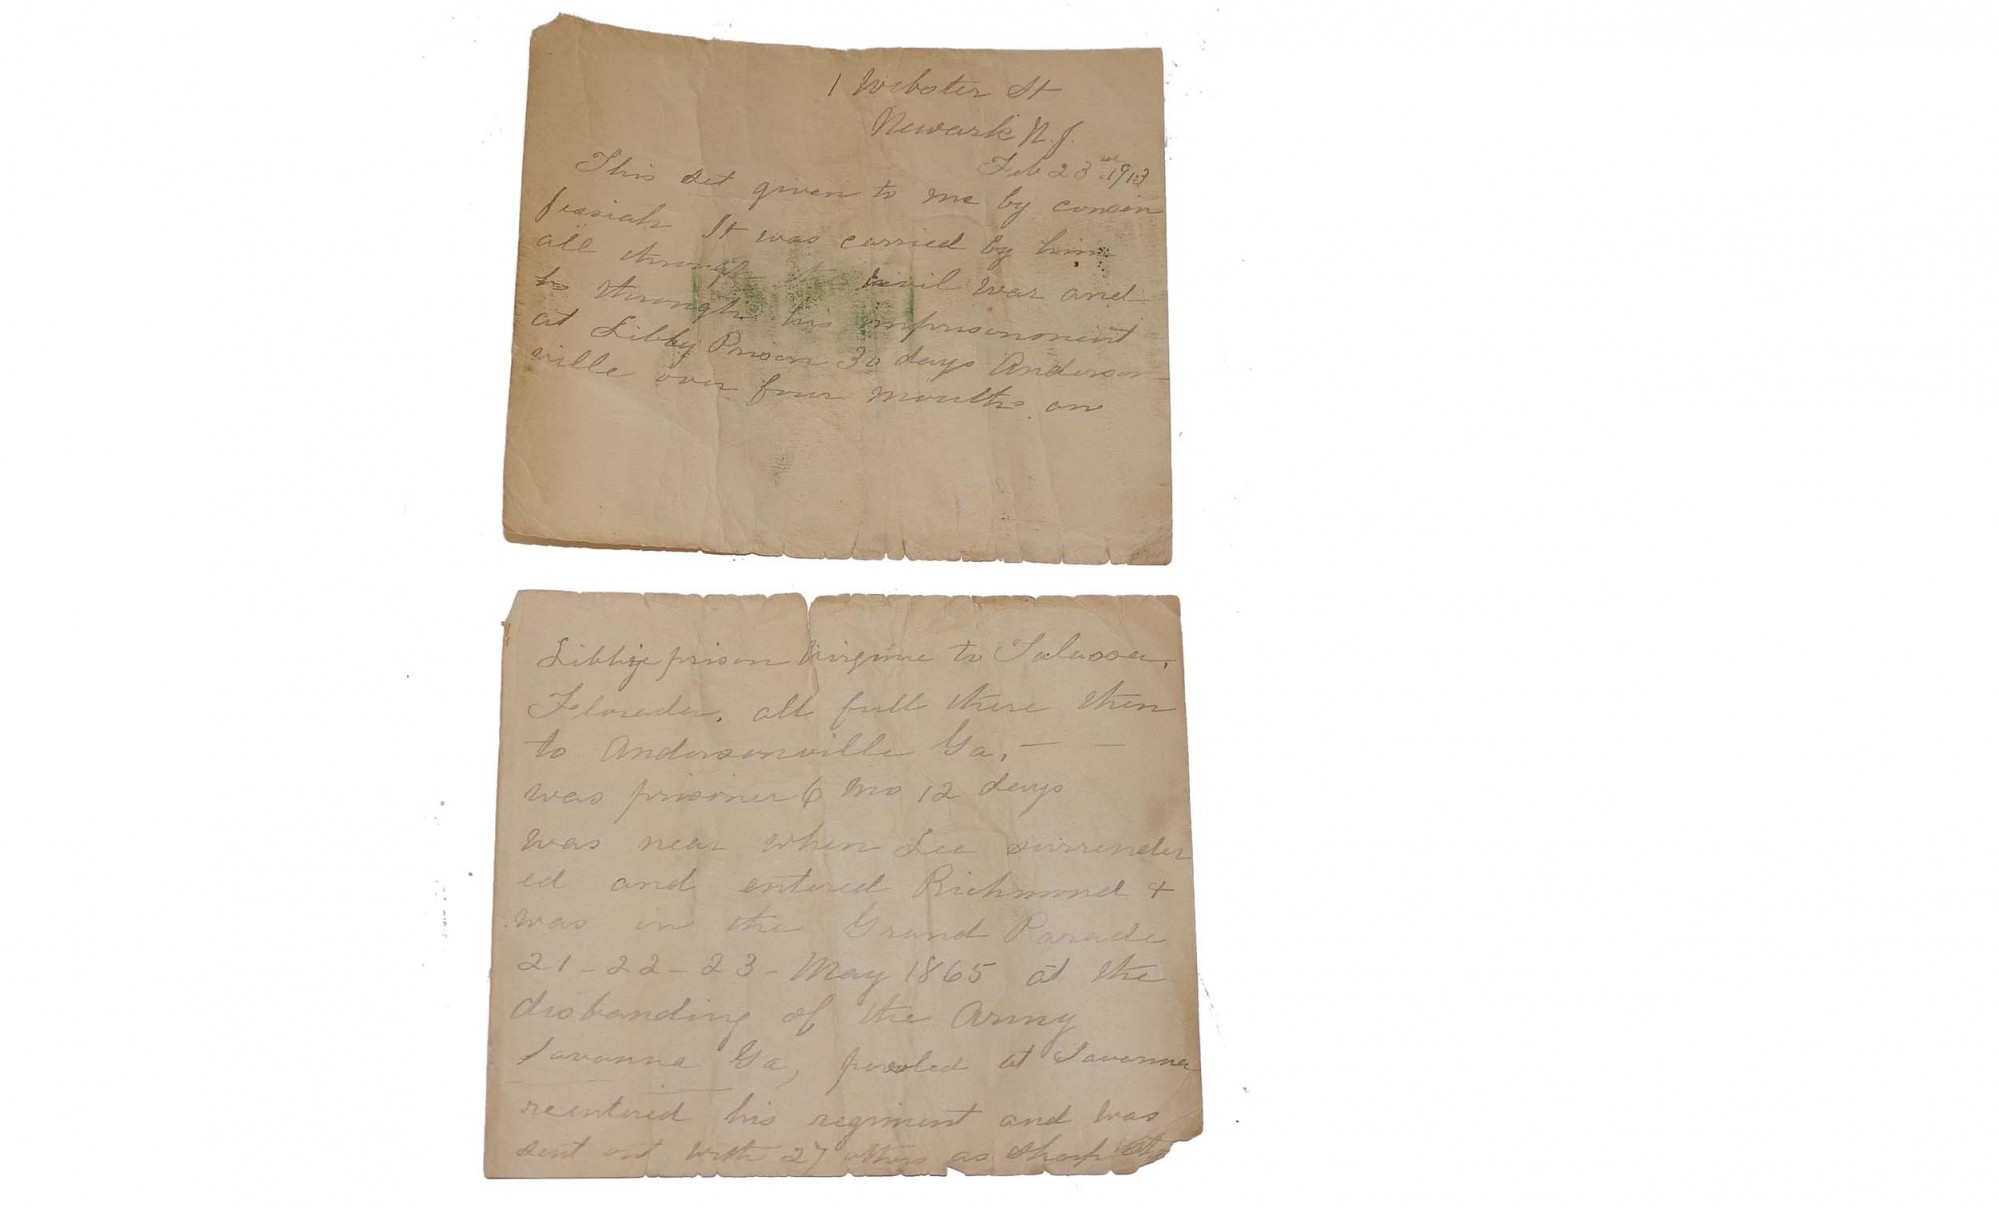 1 Webster St
Newark N.J.
Feb 23 1913
This set given to me by cousin
Josiah It was carried by him
all through the Civil War and
to through his imprisonment
at Libby Prison 30 days Anderson
ville over four months on
Libbye prison Virginie to
Floreda, all full there then
to Andersonville Ga, — —
was prisoner 6 mo 12 days
was near when Lee surrender
ed and entered Richmond +
was in the Grand Parade
21-22-23- May 1865 at the
disbanding of the Army
Savanna Ga, paroled at Savanna
reentered his regiment and was
sent out with 27 others as sharp